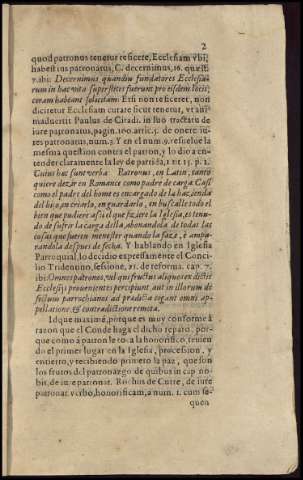 2
quod patronus tenetur reficere, Ecclesiam vbi,
habet ius patronatus, C. decernimus, 16. quæst.
7. ibi: Decernimus quandiu fundatores Ecclesia-
rum in hac vita superstites fuerint pro eisdem locis,
curam habeant solicitam: Et si non reficeret, non
dicitetur Ecclesiam curare sicut tenetur, vt ani-
maduertit Paulus de Citadi. in suo tractatu de
iure patronatus, pagin. 100. artic. 5. de onere iu-
res patronatus, num. 2. Y en el num. 9. resuelue la
mesma question contra el patron, y lo dio a en-
tender claramente la ley de partida, 1. tit 15. p. 1.
Cuius hæc sunt verba: Patronus, en Latin, tanto
quiere dezir en Romance como padre de carga. Cà assi
como el padre del home es encargado de la hazienda
del hijo, en criarlo, en guardarlo, en buscalle todo el
bien que pudiere assi el que fiziere la Iglesia, es tenu-
do de sufrir la carga della, abonandola de todas las
cosas que fueren menester quando la faza, è ampa-
randola despues de fecha. Y hablando en Iglesia
Parroquial, lo decidio expresamente el Conci-
lio Tridentino, session, 21. de reforma. cap. 7.
ibi: Omnes patronos, vel qui fructus aliquos ex dictis
Ecclesijs prouenientes percipiunt, aut in illorum de
fectum parrochianos ad prædicta cogant omni ap-
pellatione, & contradictione remota.
Idque maximè, porque es muy conforme à
razon que el Conde haga el dicho reparo, por-
que como à patron le toca la honorifico, tenien
do el primer lugar en la Iglesia, procession, y
entierro, y recibiendo primero la paz, que son
los frutos del patronazgo de quibus in cap. no-
bis, de iure patronat. Rochus de Curte, de iure
patronat. verbo, honorificam, à num. 1. cum se-
quen